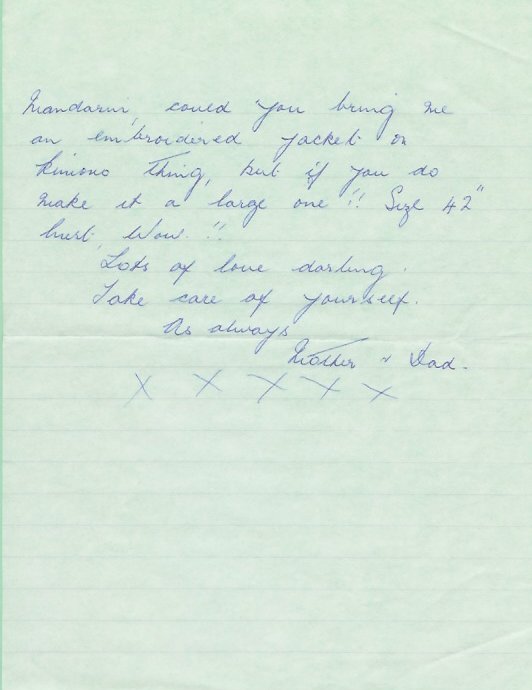 Mandarin, could you bring me
an embroidered jacket or
kimono thing, but if you do
make it a large one !! Size 42"
bust, Wow. !!
Lots of love darling.
Take care of yourself.
As always
Mother & Dad.
X X X X X